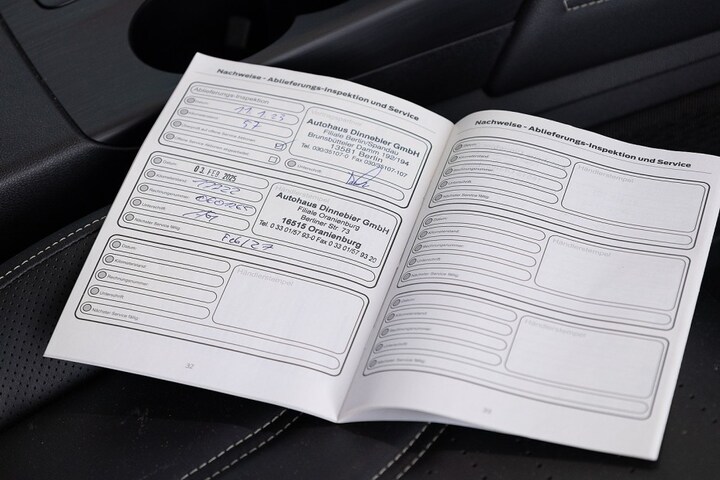 Nachweise - Ablieferungs-Inspektion und Service
Ablieferungs-Inspektion
Datum
11.1.23
57
Autohaus Dinnebier GmbH
Filiale Berlin/Spandau
Brunsbütteler Damm 192/194
13581 Berlin
Tel. 030/35107-0 Fax 030/35107-107
Datum
03. FEB. 2025
Kilometerstand
Rechnungsnummer
Unterschrift
Nächster Service fällig
Feb/27
Autohaus Dinnebier GmbH
Filiale Oranienburg
Berliner Str. 73
16515 Oranienburg
Tel. 0 33 01/57 93-0 Fax 0 33 01/57 93 20
Datum
Kilometerstand
Rechnungsnummer
Unterschrift
Nächster Service fällig
Händlerstempel
32
Nachweise - Ablieferungs-Inspektion und Service
Datum
Kilometerstand
Rechnungsnummer
Unterschrift
Nächster Service fällig
Händlerstempel
Datum
Kilometerstand
Rechnungsnummer
Unterschrift
Nächster Service fällig
Händlerstempel
Datum
Kilometerstand
Rechnungsnummer
Unterschrift
Nächster Service fällig
Händlerstempel